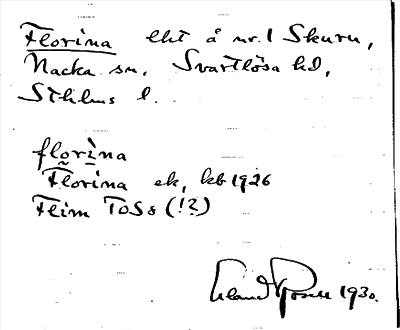 Florina lht å nr. 1 Skuru,
Nacka sn, Svartlösa hd,
Sthlms l.
florìna
Florina ek, kb 1926
Flim TOS 8 (!?)
Erland Rosell 1930.